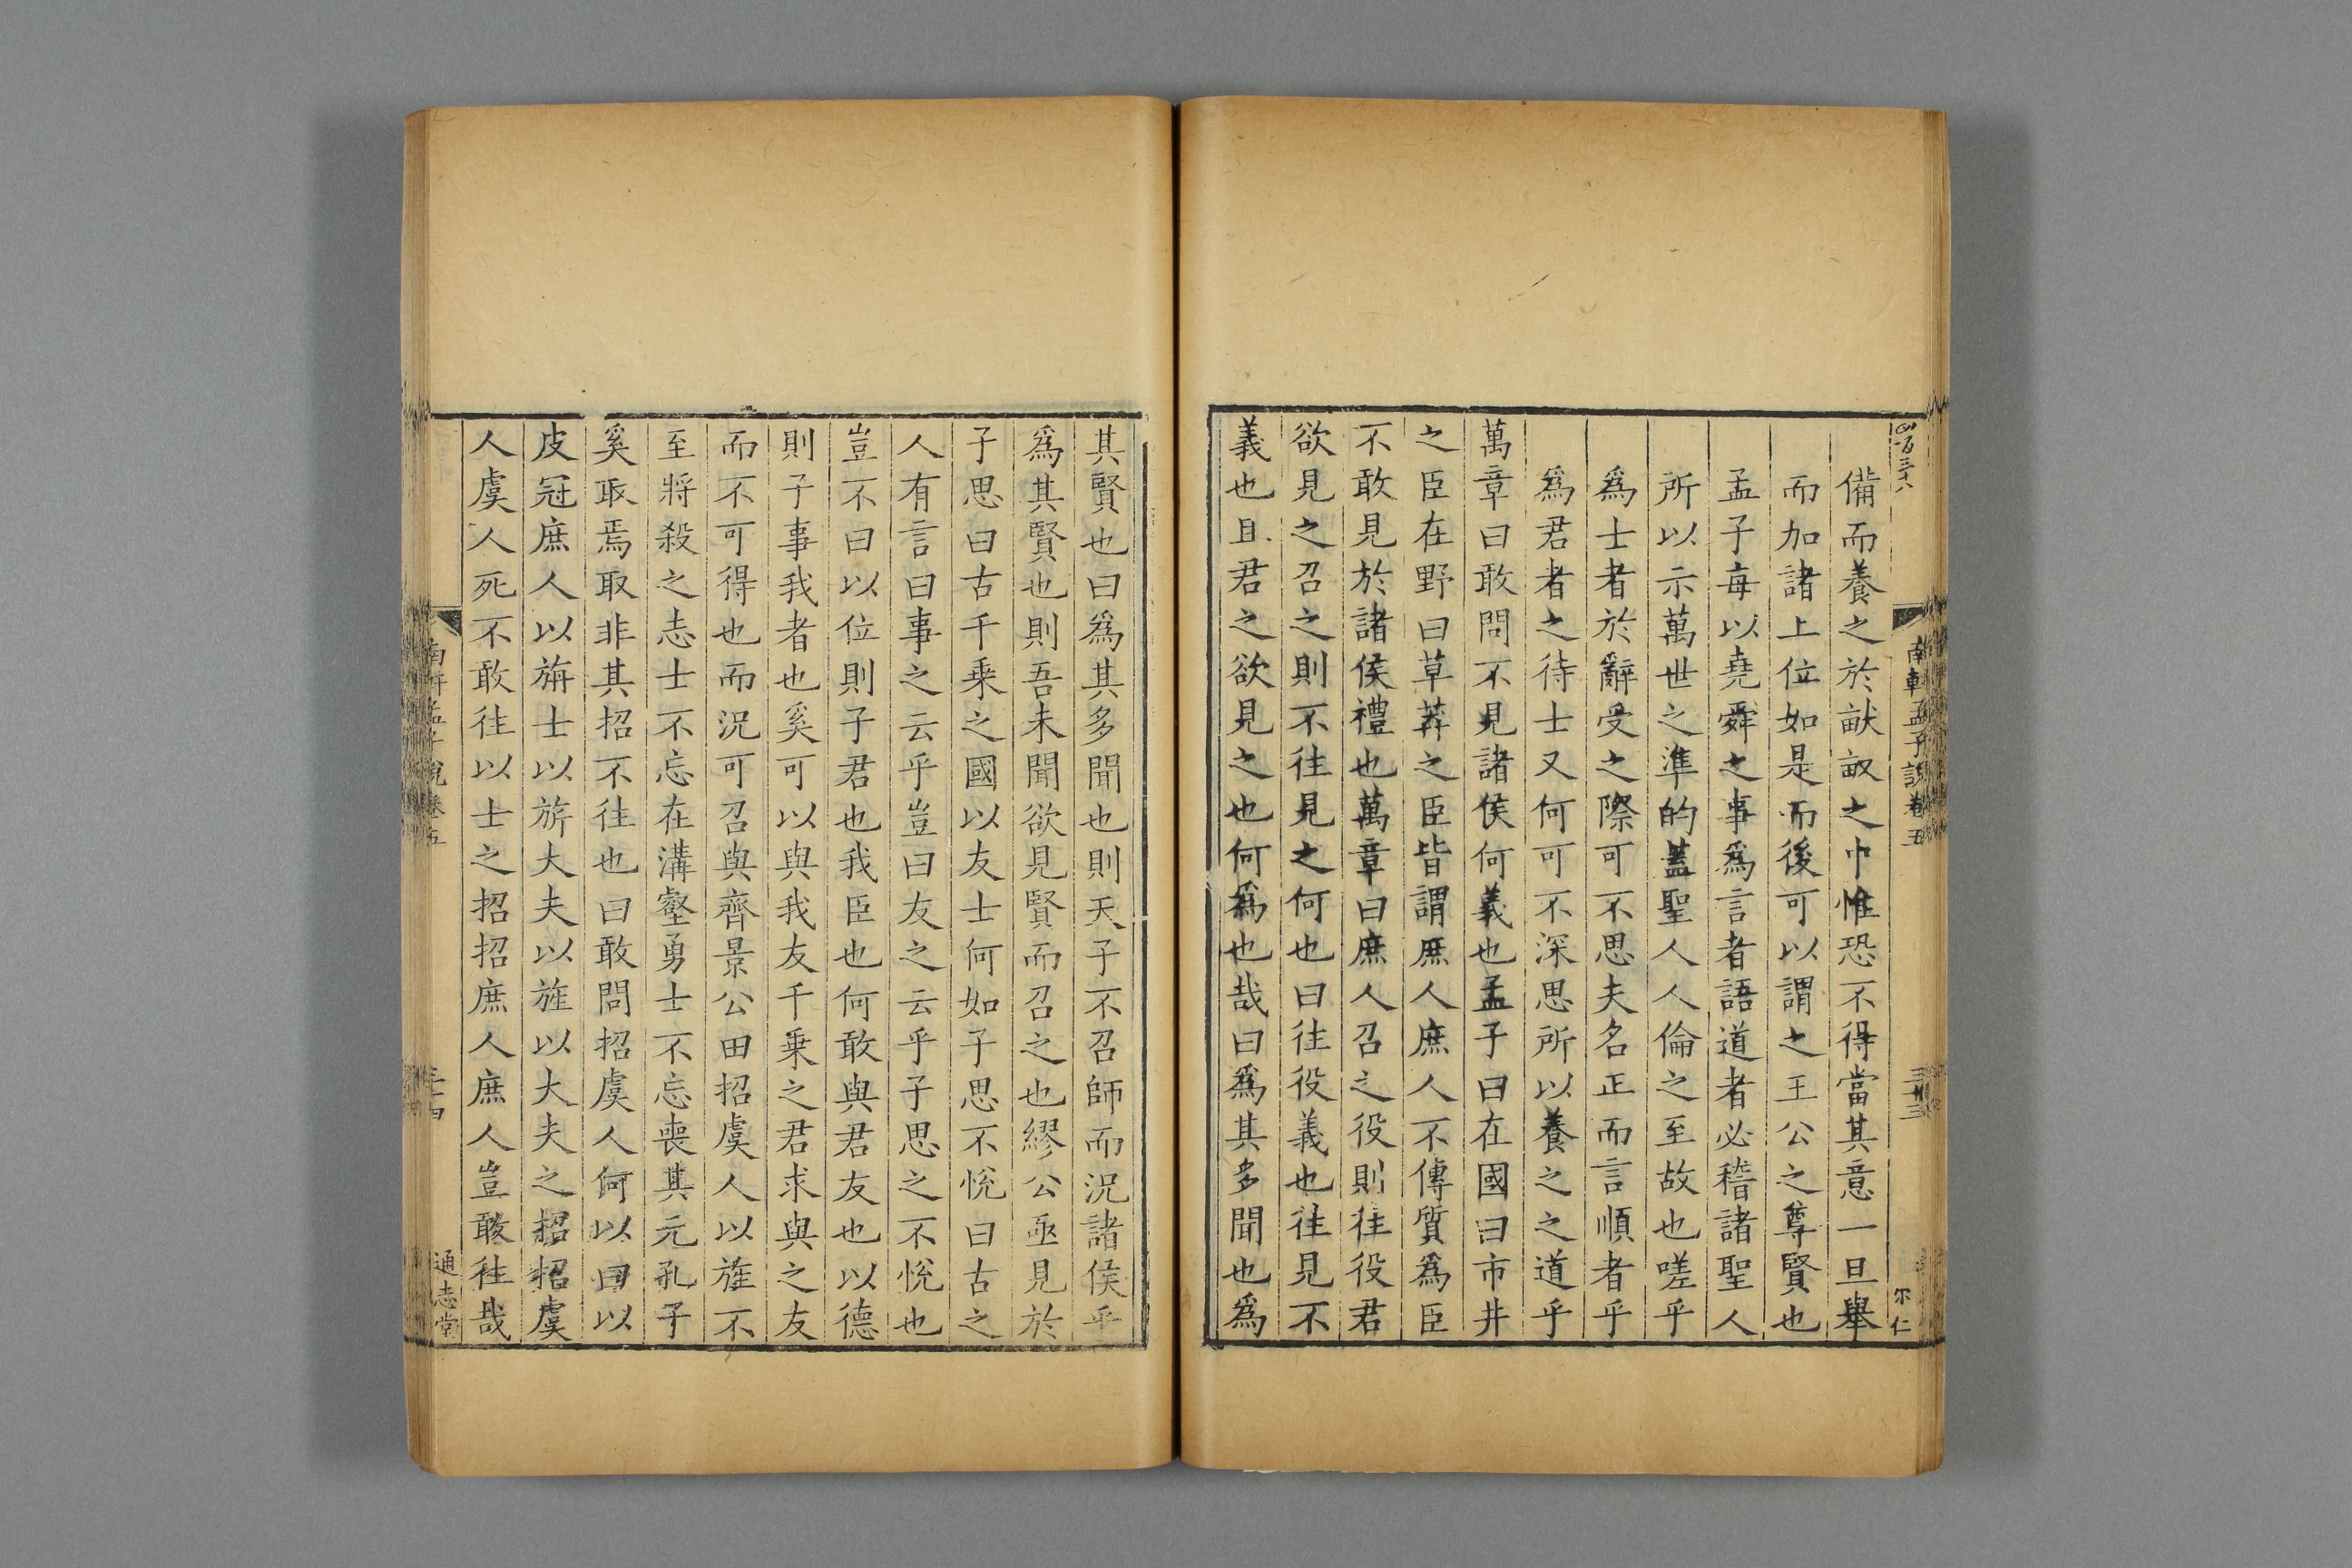 四百三十八
南軒孟子說卷五
三十三
尔仁
備而養之於畎畝之中惟恐不得當其意一旦舉
而加諸上位如是而後可以謂之王公之尊賢也
孟子每以堯舜之事爲言者語道者必稽諸聖人
所以示萬世之準的蓋聖人人倫之至故也嗟乎
爲士者於辭受之際可不思夫名正而言順者乎
爲君者之待士又何可不深思所以養之之道乎
萬章曰敢問不見諸侯何義也孟子曰在國曰市井
之臣在野曰草莽之臣皆謂庶人庶人不傳質爲臣
不敢見於諸侯禮也萬章曰庶人召之役則往役君
欲見之召之則不往見之何也曰往役義也往見不
義也且君之欲見之也何爲也哉曰爲其多聞也爲
其賢也曰爲其多聞也則天子不召師而況諸侯乎
爲其賢也則吾未聞欲見賢而召之也繆公亟見於
子思曰古千乗之國以友士何如子思不悅曰古之
人有言曰事之云乎豈曰友之云乎子思之不悅也
豈不曰以位則子君也我臣也何敢與君友也以德
則子事我者也奚可以與我友千乗之君求與之友
而不可得也而況可召與齊景公田招虞人以旌不
至將殺之志士不忘在溝壑勇士不忘喪其元孔子
奚取焉取非其招不往也曰敢問招虞人何以曰以
皮冠庶人以旃士以旂大夫以旌以大夫之招招虞
人虞人死不敢往以士之招招庶人庶人豈敢往哉
南軒孟子說卷五
三十四
通志堂